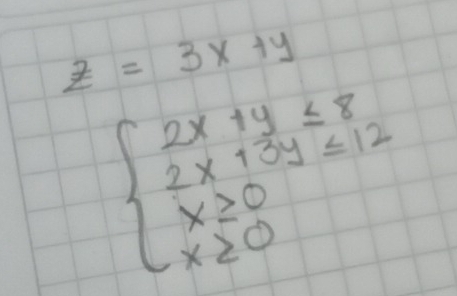 z = 3x + y
2x + y ≤ 8
2x + 3y ≤ 12
x ≥ 0
x ≥ 0